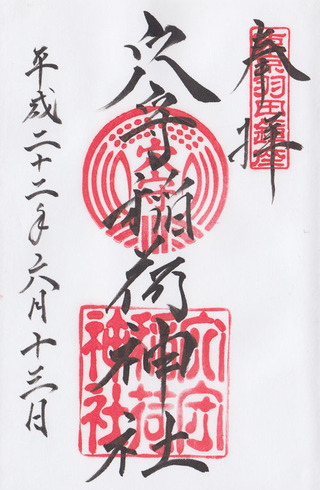 奉拝
東京羽田鎮座
穴守稲荷神社
穴守
穴守
稲荷
神社
平成二十二年六月十三日